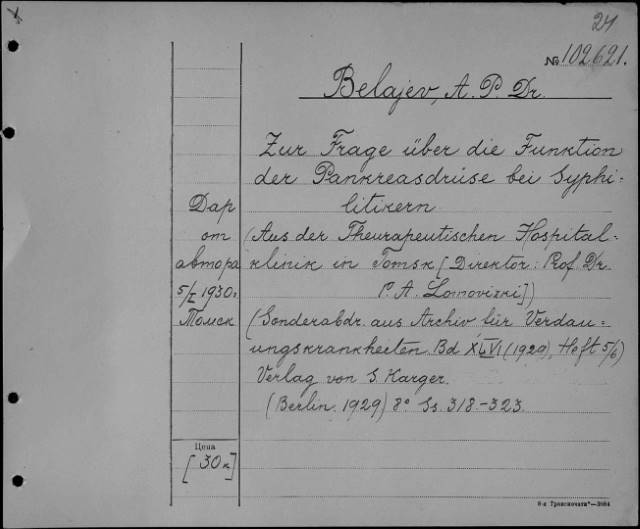 24
№ 102621.
Belajev, A. P. Dr.
Zur Frage über die Funktion
der Pankreasdrüse bei Syphi-
litikern
(Aus der Theurapeutischen Hospital-
klinik in Tomsk [Direktor: Prof. Dr.
P. A. Lomovizki])
(Sonderabdr. aus Archiv für Verdau-
ungskrankheiten. Bd XLVI (1929), Heft 5/6)
Verlag von S. Karger.
(Berlin. 1929) 8° Ss. 318.-323.
Дар
от
автора
5/I 1930г.
Томск
Цена
[30к]
6-я Транспечати"—3864